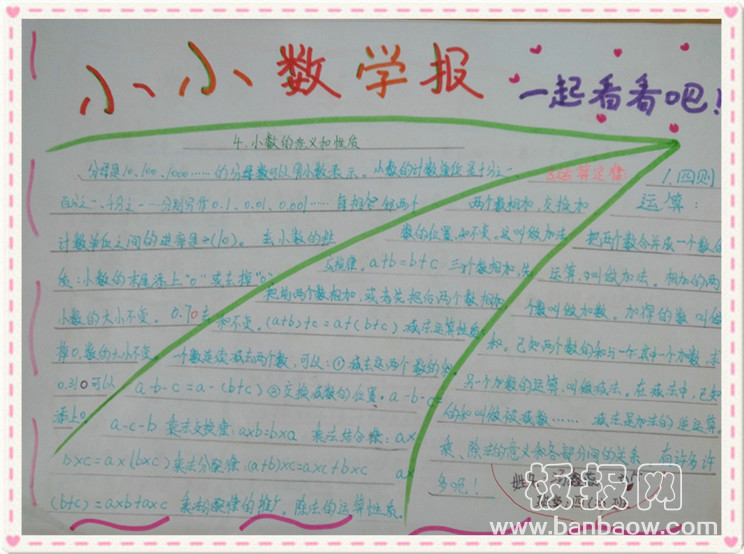 小小数学报
一起看看吧!
4.小数的意义和性质
分母是10、100、1000……的分母数可以用小数表示。小数的计数单位是十分之一、
百分之一、千分之一……分别写作0.1、0.01、0.001……每相邻两个
计数单位之间的进率是(10)。去小数的性
质:小数的末尾添上"0"或去掉"0"
小数的大小不变。0.70去
掉0,数的大小不变。
0.310可以
添上0。
3.运算定律
两个数相加,交换加
数的位置,和不变。这叫做加法
交换律。a+b=b+c 三个数相加,先
把前两个数相加,或者先把后两个数相加
和不变。(a+b)+c=a+(b+c) 减法运算性质:
一个数连续减去两个数,可以:①减去这两个数的和
a-b-c=a-(b+c) ②交换减数的位置。a-b-c=
a-c-b 乘法交换律:axb=bxa 乘法结合律:ax
bxc=ax(bxc) 乘法分配律:(a+b)xc=axc+bxc ax
(b+c)=axb+axc 乘法分配律的推广。除法的运算性质。
1.四则
运算:
把两个数合并成一个数的
运算,叫做加法。相加的两
个数叫做加数。加得的数叫做
和。已知两个数的和与一个其中一个加数,求
另一个加数的运算,叫做减法。在减法中,已知
的和叫做被减数……减法是加法的逆运算。
乘、除法的意义和各部分间的关系 有许多许
多吧!
姓名:
班
板报网
www.banbaow.com